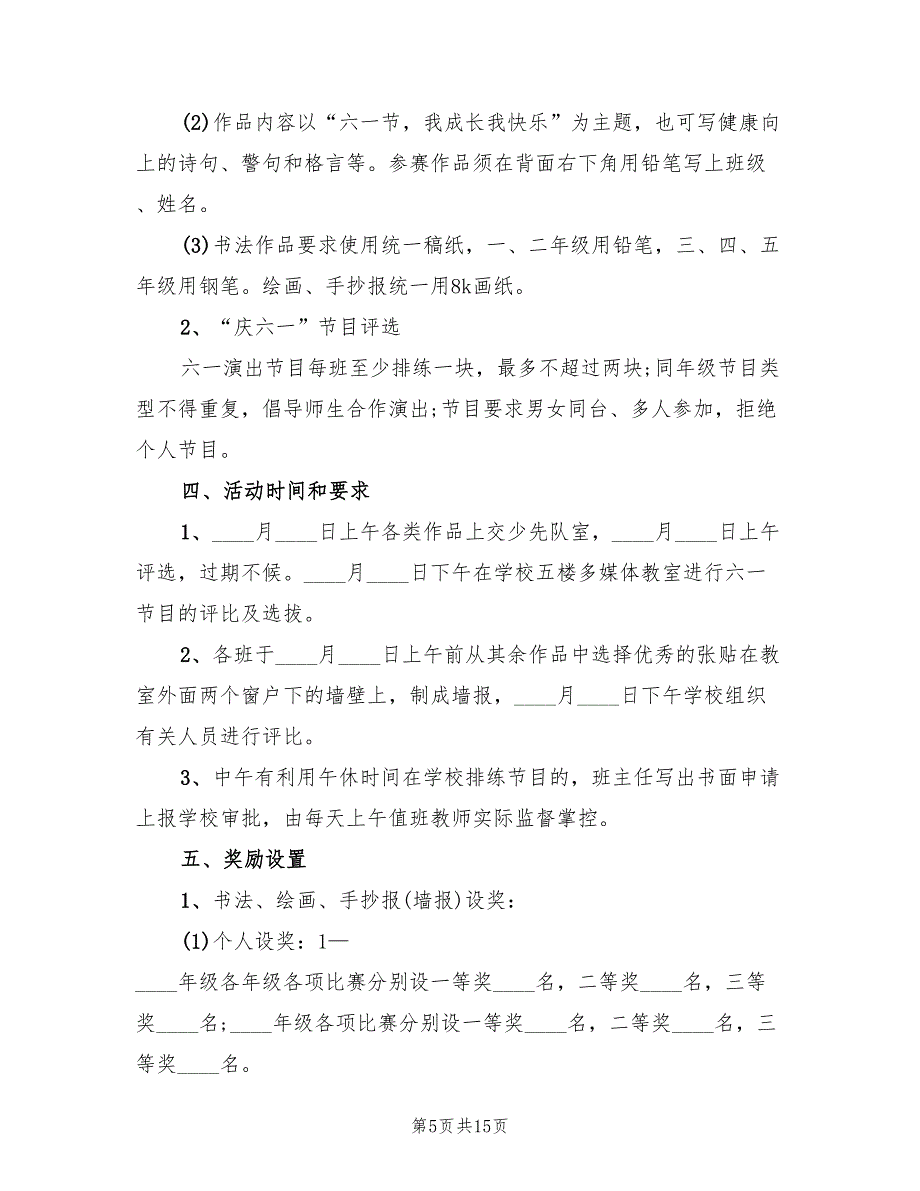 (2)作品内容以“六一节，我成长我快乐”为主题，也可写健康向
上的诗句、警句和格言等。参赛作品须在背面右下角用铅笔写上班级
、姓名。
(3)书法作品要求使用统一稿纸，一、二年级用铅笔，三、四、五
年级用钢笔。绘画、手抄报统一用8k画纸。
2、“庆六一”节目评选
六一演出节目每班至少排练一块，最多不超过两块;同年级节目类
型不得重复，倡导师生合作演出;节目要求男女同台、多人参加，拒绝
个人节目。
四、活动时间和要求
1、____月____日上午各类作品上交少先队室，____月____日上午
评选，过期不候。____月____日下午在学校五楼多媒体教室进行六一
节目的评比及选拔。
2、各班于____月____日上午前从其余作品中选择优秀的张贴在教
室外面两个窗户下的墙壁上，制成墙报，____月____日下午学校组织
有关人员进行评比。
3、中午有利用午休时间在学校排练节目的，班主任写出书面申请
上报学校审批，由每天上午值班教师实际监督掌控。
五、奖励设置
1、书法、绘画、手抄报(墙报)设奖：
(1)个人设奖：1—
____年级各年级各项比赛分别设一等奖____名，二等奖____名，三等
奖____名;____年级各项比赛分别设一等奖____名，二等奖____名，三
等奖____名。
第5页共15页